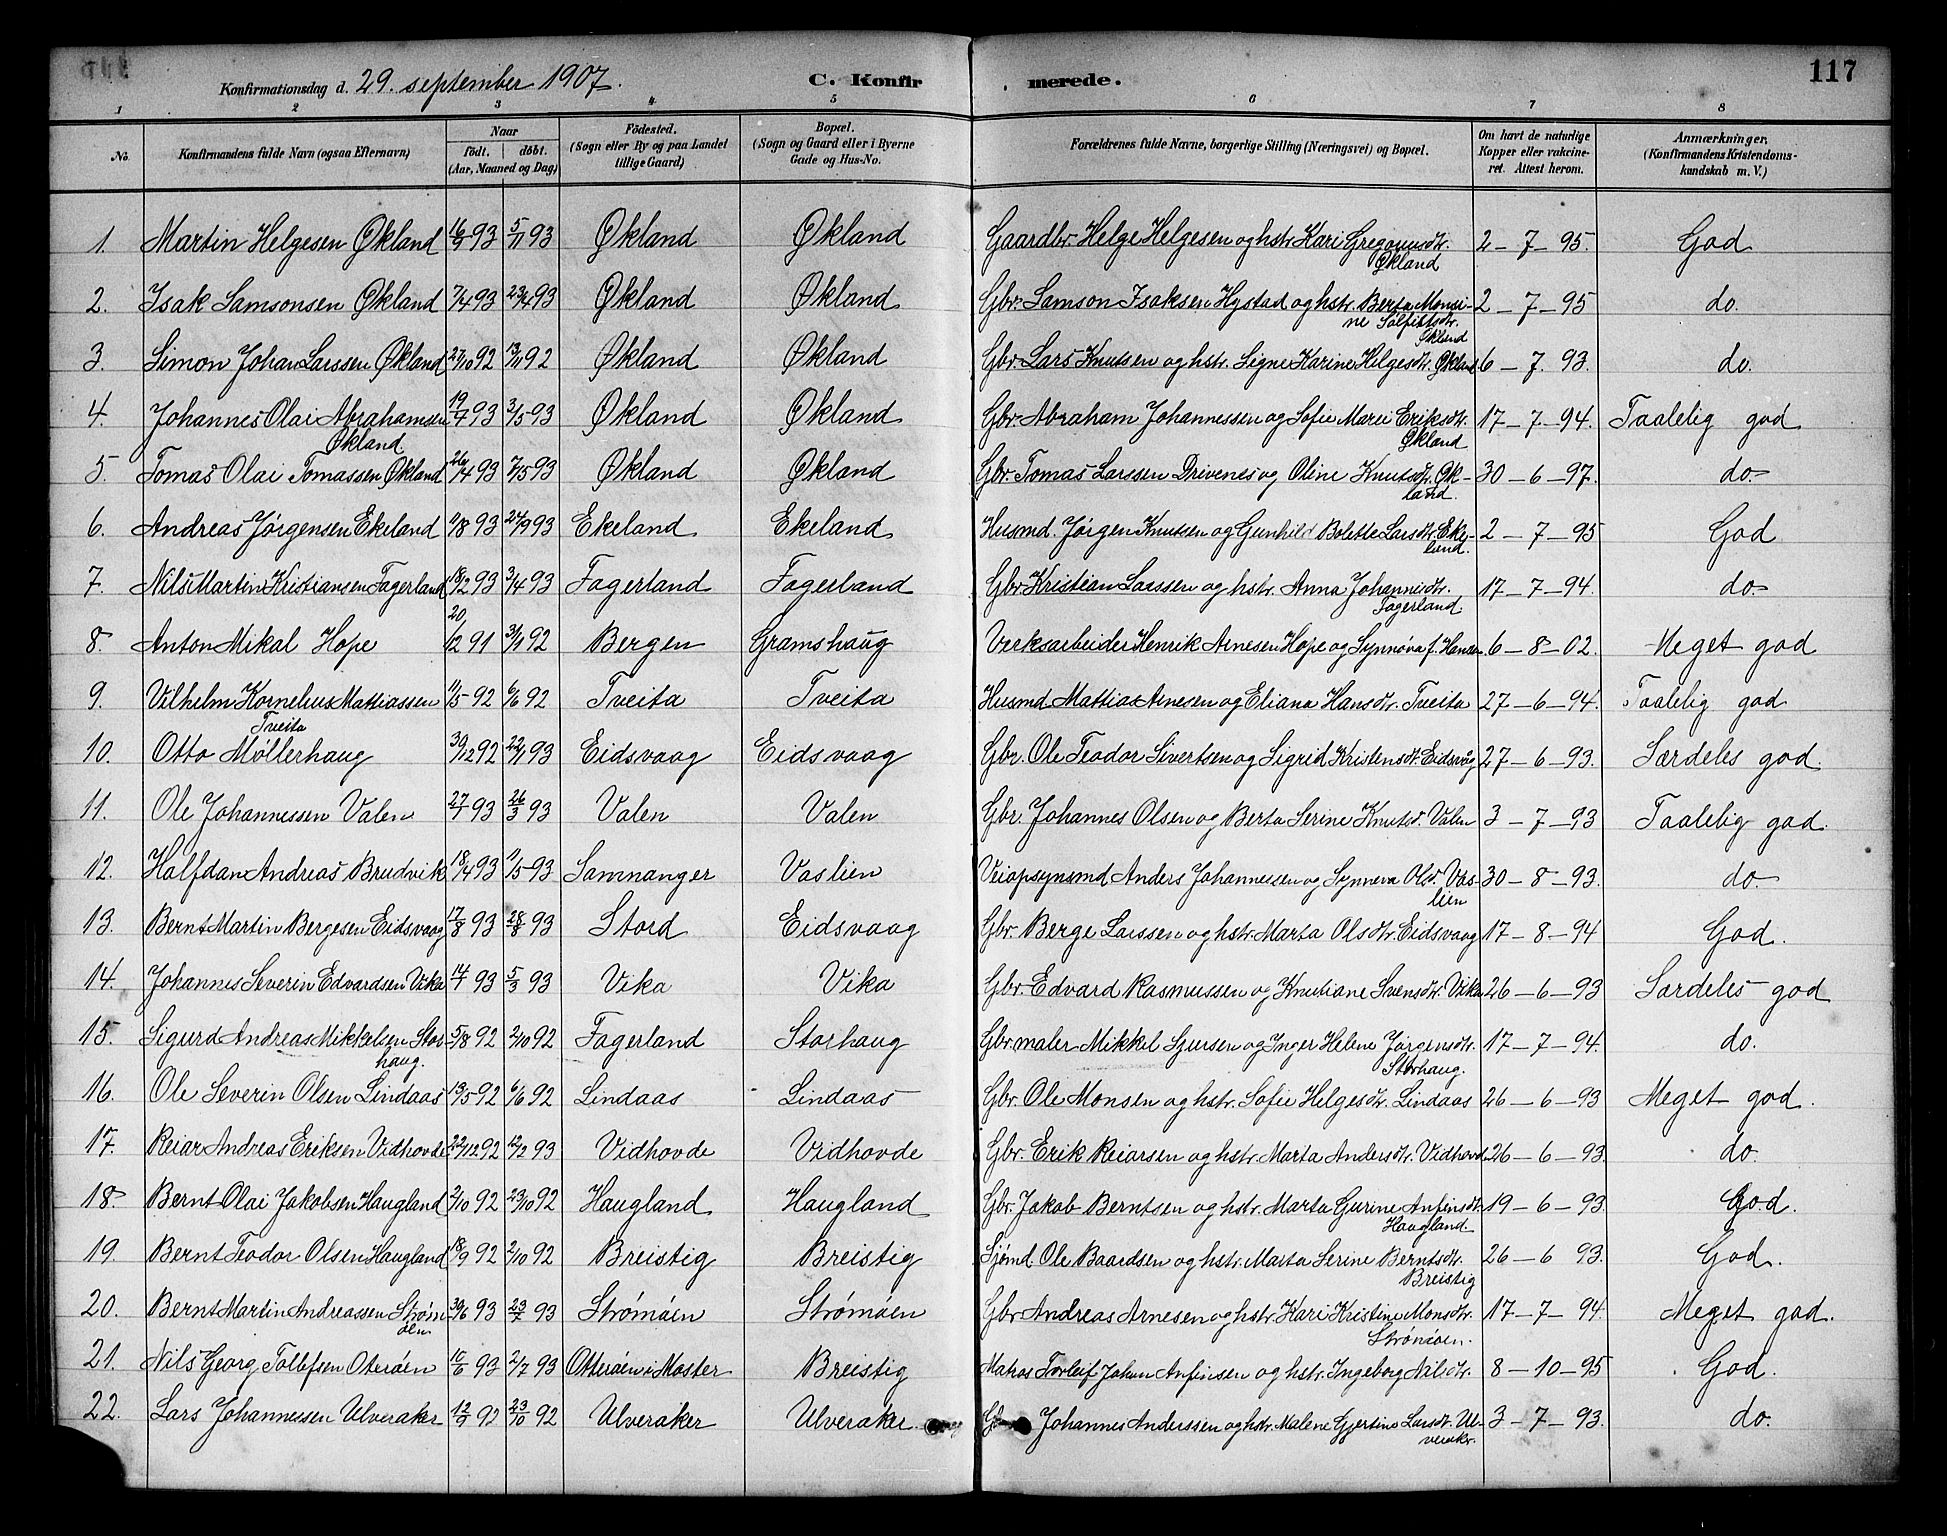 117
Konfirmationsdag d. 29. september 1907. C. Konfirmerede.
1 2 3 4 5 6 7 8
No. Konfirmandens fulde Navn (ogsaa Efternavn) Naar født. døbt. (Aar, Maaned og Dag) Födested. (Sogn eller By og paa Landet tillige Gaard) Bopæl. (Sogn og Gaard eller i Byerne Gade og Hus-No. Forældrenes fulde Navne, borgerlige Stilling (Næringsvei) og Bopæl. Om havt de naturlige Kopper eller vakcineret. Attest herom. Anmærkninger, (Konfirmandens Kristendomskundskab m. V.)
1. Martin Helgesen Økland 16/9 93 5/11 93 Økland Økland Gaardbr Helge Helgesen og hstr. Kari Gregoriusdtr. Økland 2-7-95. God
2. Isak Samsonsen Økland 7/4 93 23/4 93 Økland Økland Gbr. Samson Isaksen Hystad og hstr. Berta Monsine Sølfitsdtr. Økland 2-7-95 do.
3. Simon Johan Larssen Økland 27/10 92 13/11 92 Økland Økland Gbr. Lars Knutsen og hstr. Signe Karine Helgesdtr. Økland 6-7. 93. do.
4. Johannes Olai Abrahamsen Økland 19/4 93 3/5 93 Økland Økland Gbr. Abraham Johannessen og Sofie Marie Eriksdtr. Økland 17-7-94. Taalelig god
5. Tomas Olai Tomassen Økland 26/4 93 7/5 93 Økland Økland Gbr. Tomas Larssen Drivenes og Oline Knutsdtr. Økland. 30-6-97. do.
6. Andreas Jørgensen Ekeland 11/8 93 24/9 93 Ekeland Ekeland Husmd. Jørgen Knutsen og Gunhild Bolette Larsdtr. Ekeland. 2-7-95 God
7. Nils Martin Kristiansen Fagerland 18/2 93 3/4 93 Fagerland Fagerland Gbr. Kristian Larssen og hstr. Anna Johannesdtr. Fagerland 17-7-94. do.
8. Anton Mikal Hope 20/12 91 31/1 92 Bergen Gramshaug Verksarbeider Henrik Arnesen Hope og Synnøva f. Hansen 6-8-02. Meget god
9. Vilhelm Kornelius Mattiassen Tveita 11/5 92 6/6 92 Tveita Tveita Husmd Mattias Arnesen og Eliana Hansdtr. Tveita 27-6-94. Taalelig god
10. Otto Møllerhaug 30/12 92 22/1 93 Eidsvaag Eidsvaag Gbr. Ole Teodor Sivertsen og Sigrid Kristensdt. Eidsvåg 27-6-93. Særdeles god
11. Ole Johannessen Valen 27/1 93 26/3 93 Valen Valen Gbr. Johannes Olsen og Berta Serine Knutsd. Valen 3-7-93 Taalelig god.
12. Halfdan Andreas Brudvik 18/4 93 11/5-93 Samnanger Vaslien Veiopsynsmd Anders Johannessen og Synneva Olsd. Vaslien 30-8-93. do.
13. Bernt Martin Bergesen Eidsvaag 17/8 93 28/8 93 Stord Eidsvaag Gbr. Berge Larssen og hstr. Marta Olsdtr. Eidsvaag 17-8-94 God.
14. Johannes Severin Edvardsen Vika 14/1 93 5/3 93 Vika Vika Gbr. Edvard Rasmussen og Knutiane Svensdtr. Vika 26-6-93 Særdeles god
15. Sigurd Andreas Mikkelsen Storhaug. 5/8 92 2/10 92 Fagerland Storhaug Gbr. maler Mikkel Sjursen og Inger Helene Jørgensdtr. Storhaug. 17-7-94. do.
16. Ole Severin Olsen Lindaas 13/5 92 6/6 92 Lindaas Lindaas Gbr. Ole Monsen og hstr. Sofie Helgesdtr. Lindaas 26-6-93 Meget god.
17. Reiar Andreas Eriksen Vidhovde 22/12 92 12/2 93 Vidhovde Vidhovde Gbr. Erik Reiarsen og hstr. Marta Andersdtr. Vidhovde 26-6-93. do.
18. Bernt Olai Jakobsen Haugland 2/10 92 23/10 92 Haugland Haugland Gbr. Jakob Berntsen og hstr. Marta Gurine Anfinsdtr. Haugland. 19-6-93. God.
19. Bernt Teodor Olsen Haugland 18/9 92 2/10 92 Breistig Breistig Sjømd. Ole Baardsen og hstr. Marta Serine Berntsdtr. Breistig 26-6 93. God.
20. Bernt Martin Andreassen Strømøen 30/6 93 23/7 93 Strømøen Strømøen Gbr. Andreas Arnesen og hstr. Kari Kristine Monsdtr. Strømøen. 17-7-94. Meget god.
21. Nils Georg Tollefsen Oterøen 10/6 93 2/7 93 Otterøen i Moster Breistig Matros Torleif Johan Anfinsen og hstr. Ingeborg Nilsdtr. 8-10-95 God.
22. Lars Johannessen Ulveraker 12/9 92 23/10 92 Ulveraker Ulveraker Johannes Anderssen og hstr. Malene Gjertine Larsdt. Ulveraker. 3-7-93. do.